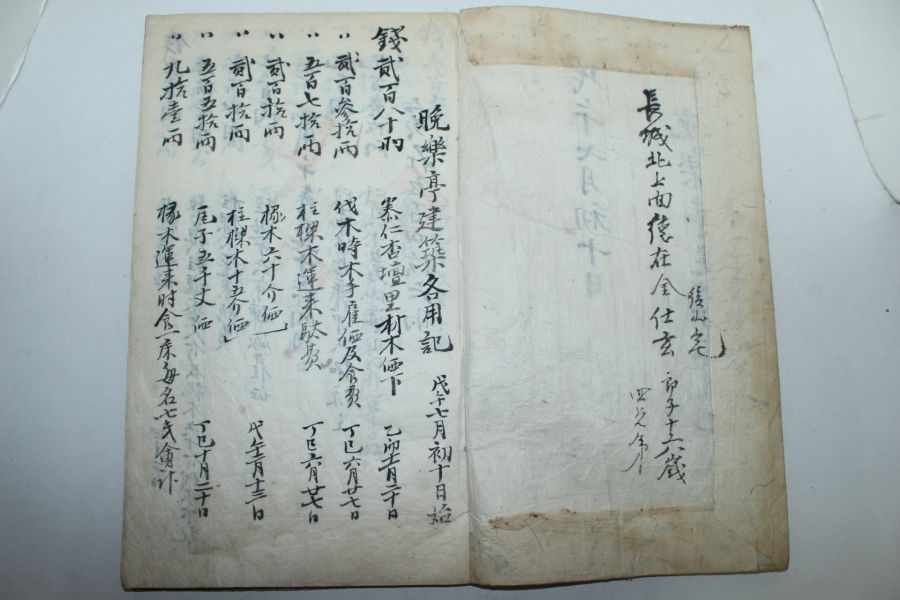 長城北上面德在金仕玄
後小宅
郎子十六歲
晩樂亭建築各用記 戊午七月初十日始
錢貳百八十兩 泰仁杏壇里材木価下 乙卯十一月二十日
〃貳百參拾兩 伐木時木手雇価及食費 丁巳六月廿七日
〃五百七拾兩 柱樑木運来駄費 丁巳六月廿七日
〃貳百拾兩 椽木六十介価 戊午二月十三日
〃貳百拾兩 柱樑木十五介価
〃五百五拾兩 瓦子五千丈価 丁巳十月二十日
〃九拾壹兩 椽木運来时食一床每名七戔會计